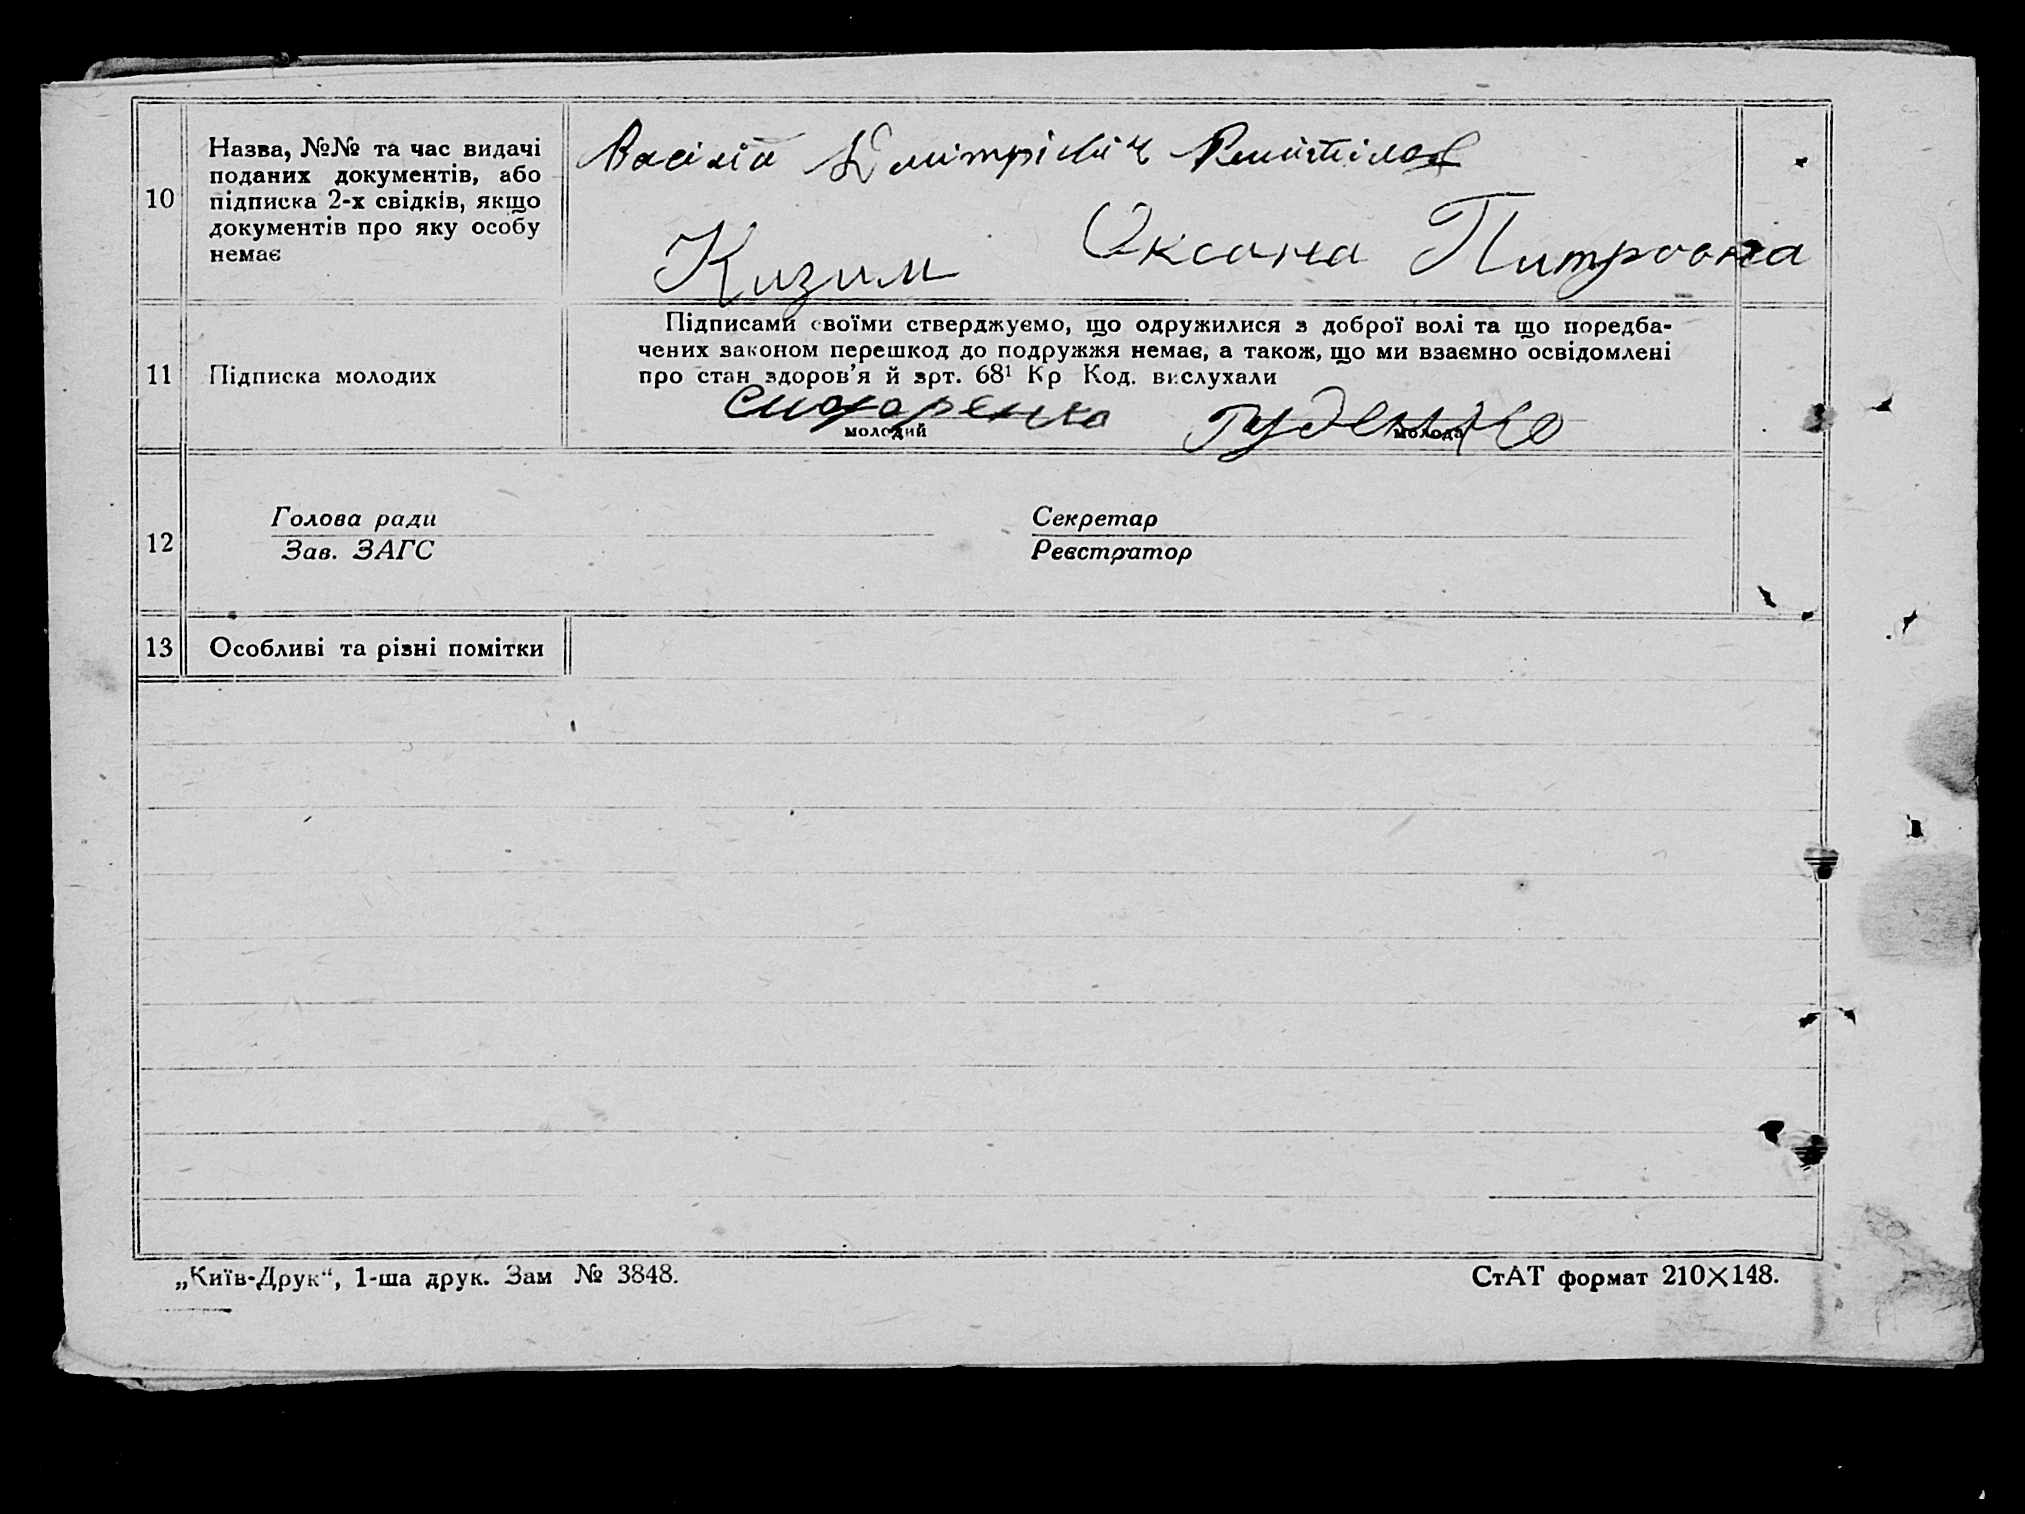 10
Назва, №№ та час видачі
поданих документів, або
підписка 2-х свідків, якщо
документів про яку особу
немає
Василій Дмітрієвич
Кизим Оксана Питровна
11
Підписка молодих
Підписами своїми стверджуємо, що одружилися з доброї волі та що поредба-
чених законом перешкод до подружжя немає, а також, що ми взаємно освідомлені
про стан здоров’я й зрт. 68¹ Кр Код. вислухали
Руденко
молодий молода
12
Голова ради
Зав. ЗАГС
Секретар
Реєстратор
13
Особливі та різні помітки
„Київ-Друк“, 1-ша друк. Зам № 3848.
СтАТ формат 210×148.